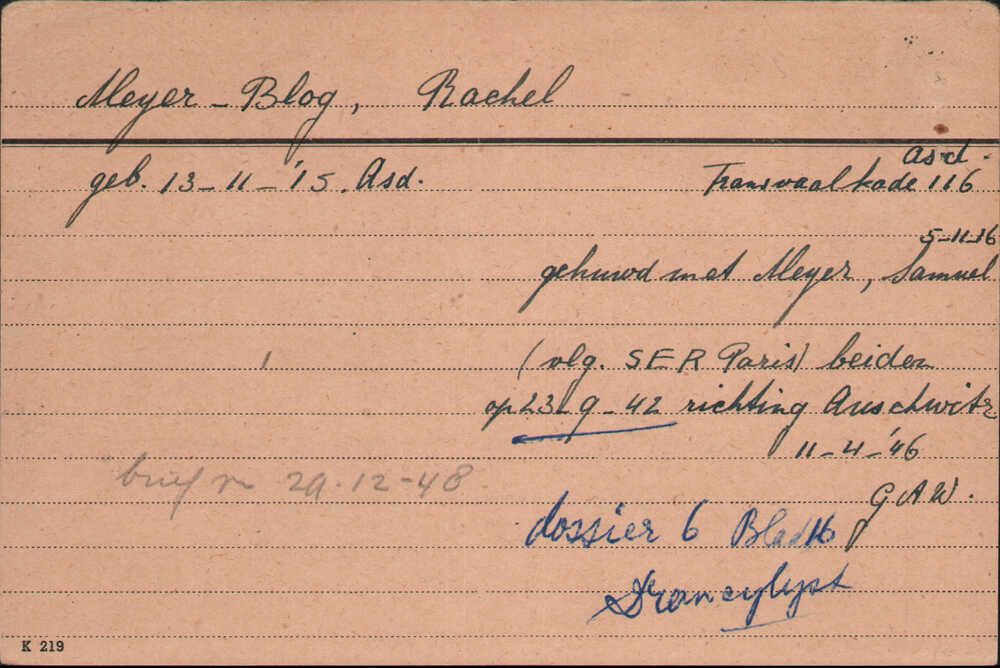 Meyer - Blog, Rachel
Asd.
geb. 13-11-'15. Asd.
Transvaalkade 116
5-11-16
gehuwd met Meyer, Samuel
(vlg. SER Paris) beiden
op 23-9-42 richting Auschwitz
11-4-'46
brief v 29.12-48.
GAW.
dossier 6 Blad 16
Drancylyst
K 219